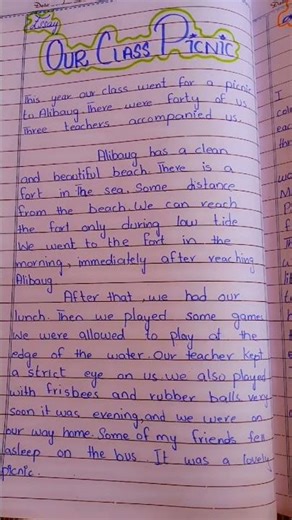 Essay
OUR CLASS PICNIC
This year our class went for a picnic
to Alibaug. There were forty of us
Three teachers accompanied us.
Alibaug has a clean
and beautiful beach. There is a
fort in The sea. Some distance
from the beach. We can reach
the fort only during low tide
We went to the fort in the
morning, immediately after reaching
Alibaug
After that, we had our
lunch. Then we played some games
We were allowed to play at the
edge of the water. Our teacher kept
a strict eye on us. we also played
with frisbees and rubber balls very
soon it was evening, and we were on
our way home. Some of my friends
asleep on the bus It was a lovely
picnic.